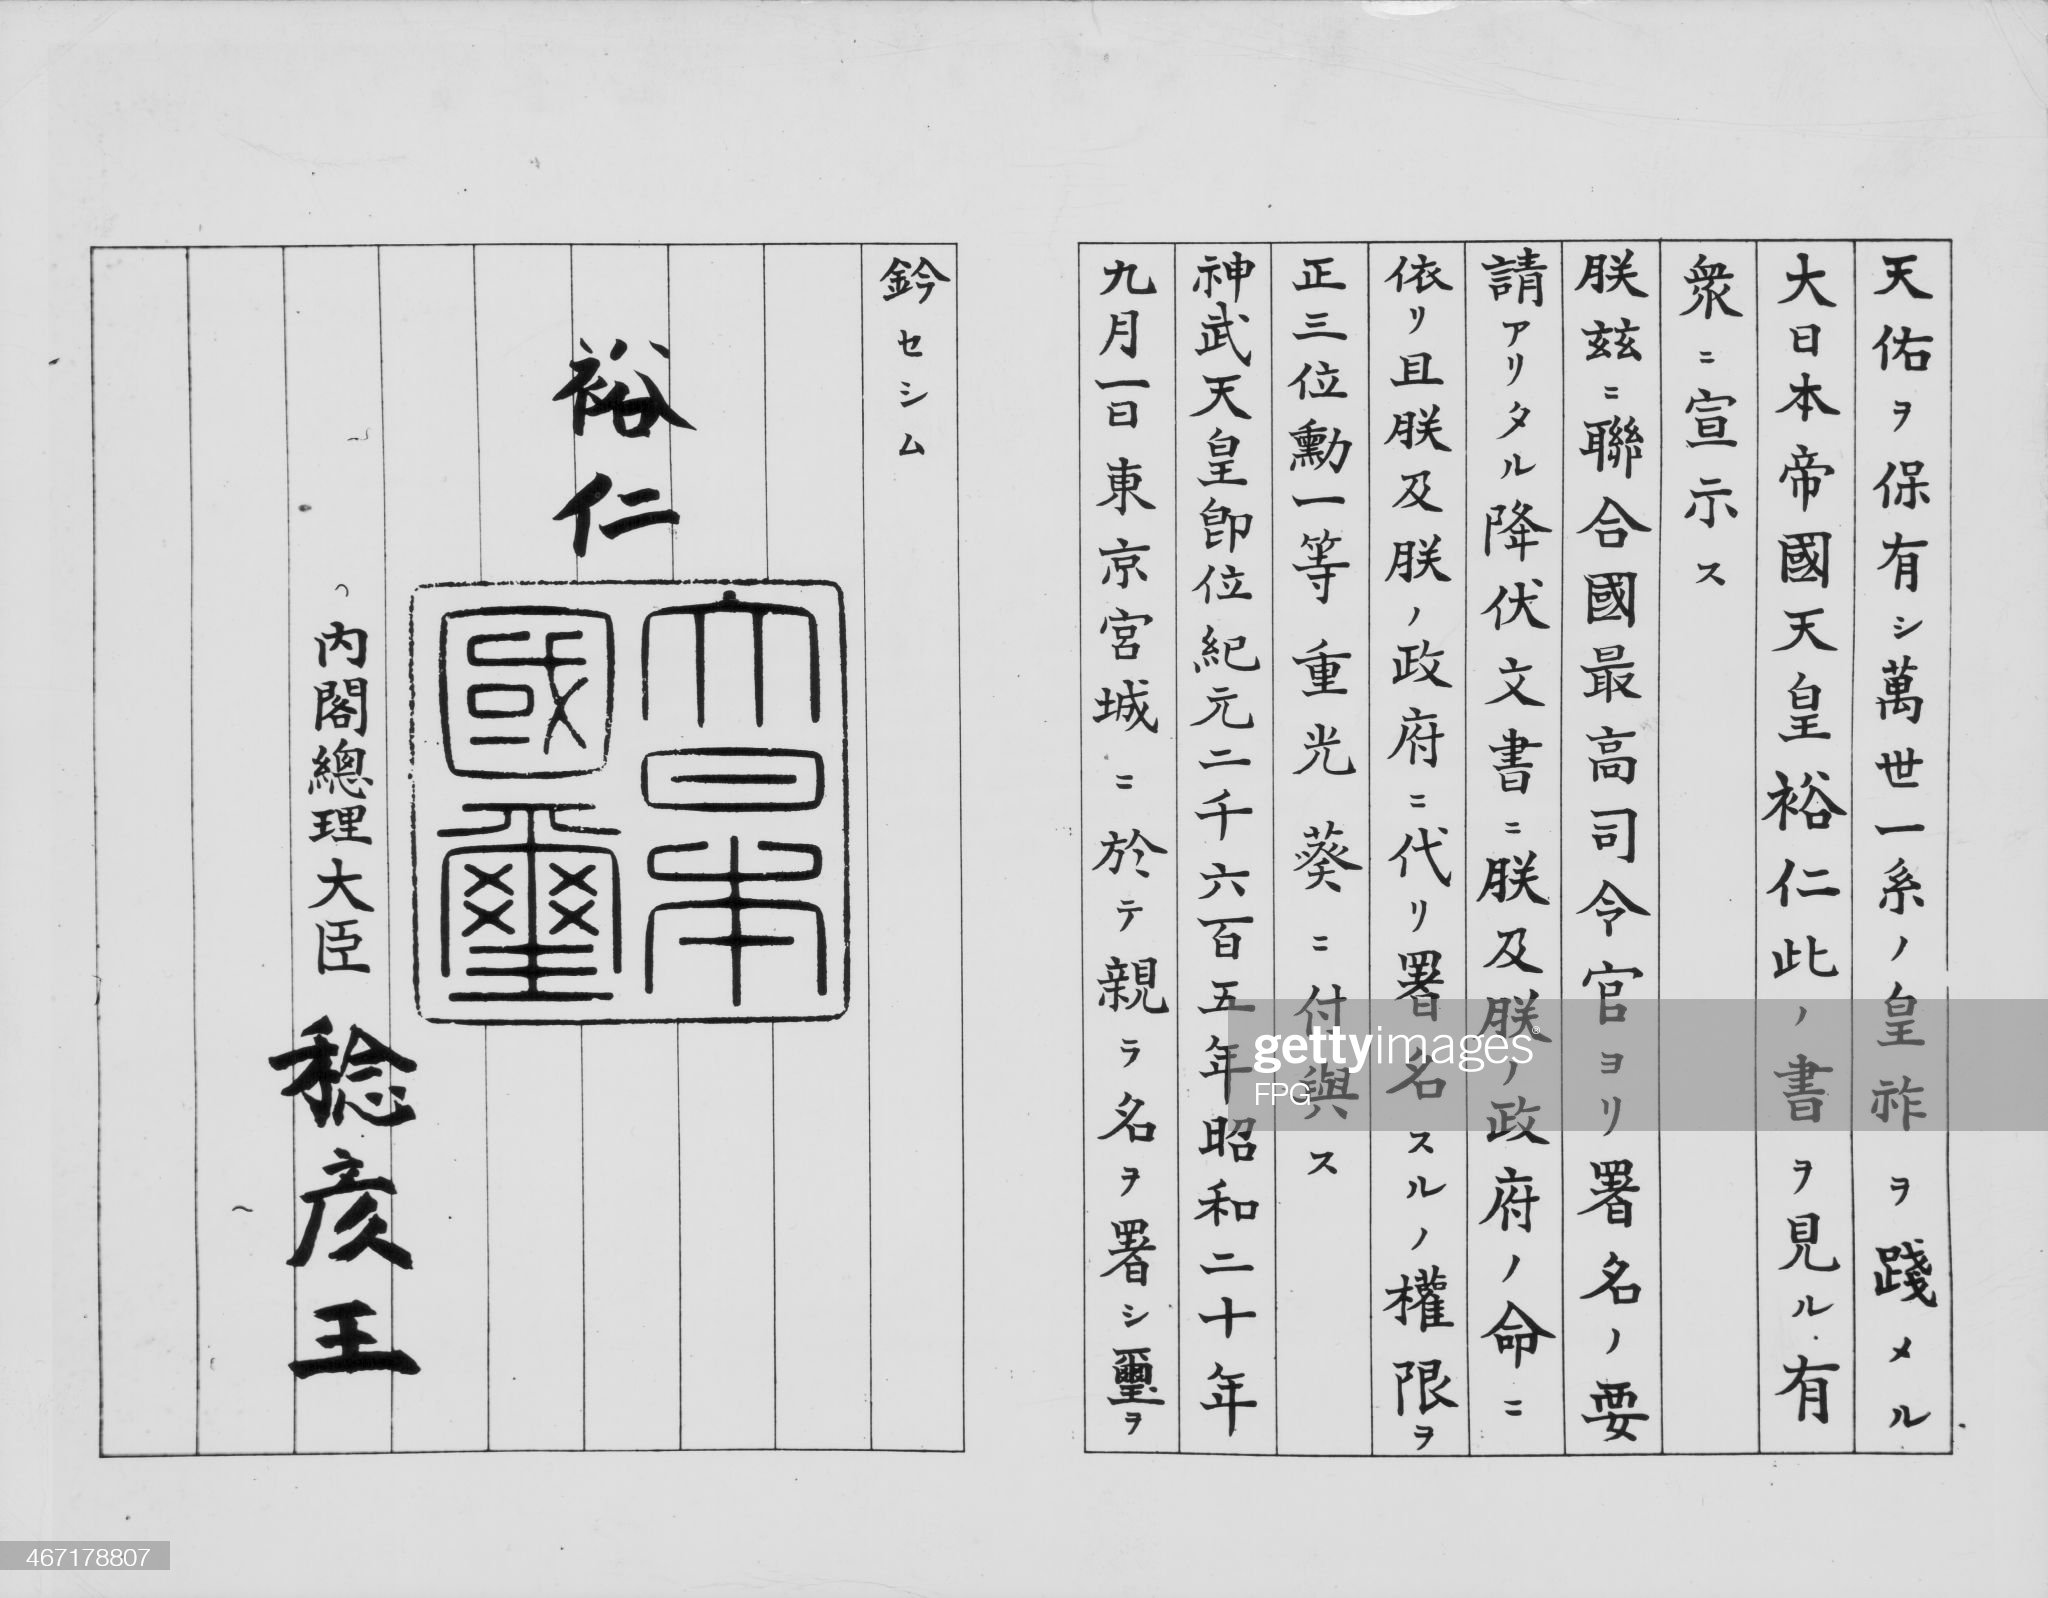 天佑ヲ保有シ萬世一系ノ皇祚ヲ踐メル
大日本帝國天皇裕仁此ノ書ヲ見ル有
衆ニ宣示ス
朕玆ニ聯合國最高司令官ヨリ署名ノ要
請アリタル降伏文書ニ朕及朕ノ政府ノ命ニ
依リ且朕及朕ノ政府ニ代リ署名スルノ權限ヲ
正三位勳一等重光葵ニ付與ス
神武天皇卽位紀元二千六百五年昭和二十年
九月一日東京宮城ニ於テ親ラ名ヲ署シ璽ヲ
鈐セシム
裕仁
大日本
國璽
內閣總理大臣 稔彥王
gettyimages®
FPG
467178807